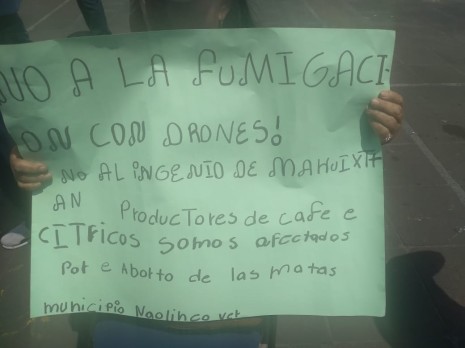 NO A LA FUMIGACI
ON CON DRONES!
NO AL iNGENIO DE MAHUIXTL
AN
PRODUCTORES de cafe e
CITRICOS somos afectados
Por e Aborto de las matas
municipio Naolinco ver